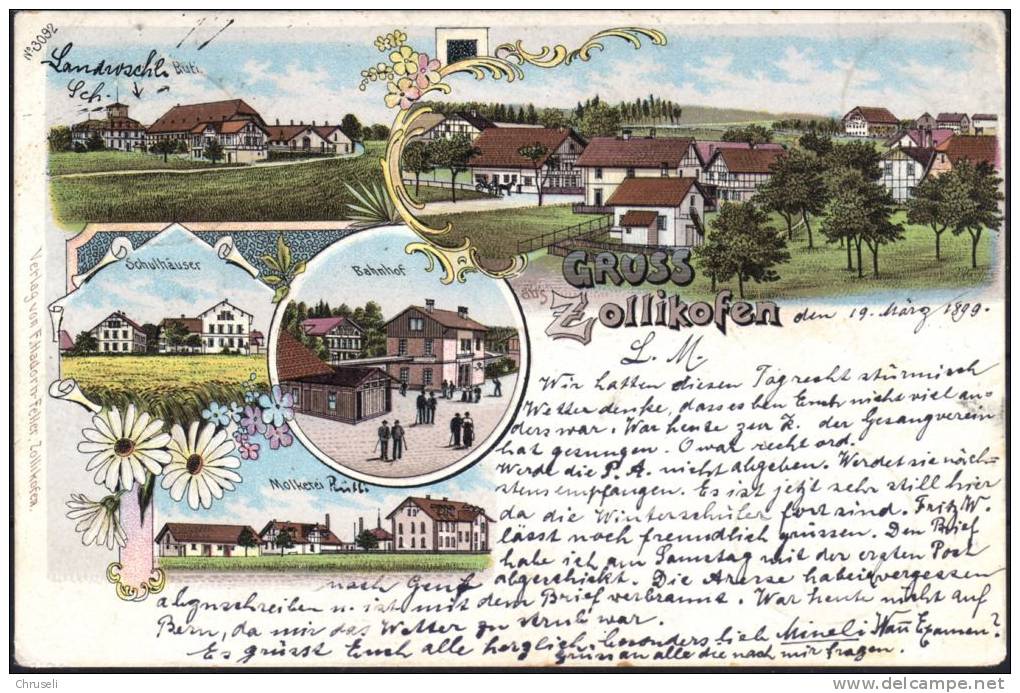 No 3092
Landw.schl. Rüti.
Sch.
Schulhäuser
Bahnhof
Molkerei Rütti
Verlag von F. Hadorn-Feller, Zollikofen.
GRUSS
aus
Zollikofen
den 19. März 1899.
L. M.
Wir hatten diesen Tag recht stürmisch
Wetter denke, dass es bei Euch nicht viel an-
ders war. War heute zur K. der Gesangverein
hat gesungen. O war recht ord.
Werde die P. A. nicht abgeben. Werdet sie näch-
stens empfangen. Es ist jetzt sehr still hier
da die Winterschüler fort sind. Fritz W.
lässt noch freundlich grüssen. Den Brief
habe ich am Samstag mit der ersten Post
abgeschickt. Die Adresse habe vergessen
nach Genf
abzuschreiben u. ist mit dem Brief verbrannt. War heute nicht auf
Bern, da mir das Wetter zu war.
Es grüsst Euch alle herzlich besonders lich Mineli Wann Examen?
Gruss an alle die nach mir fragen.
© Chrueseli
http://www.delcampe.net